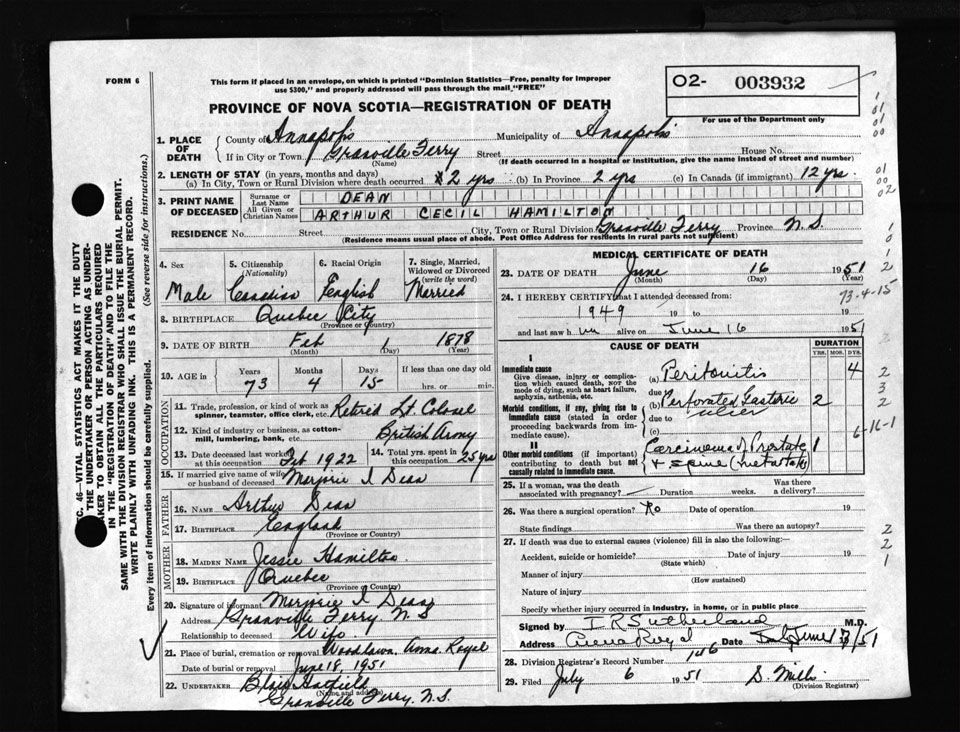 FORM 6
This form if placed in an envelope, on which is printed "Dominion Statistics—Free, penalty for improper
use $300," and properly addressed will pass through the mail "FREE"
PROVINCE OF NOVA SCOTIA—REGISTRATION OF DEATH
O2- 003932
For use of the Department only
1. PLACE OF DEATH
County of Annapolis Municipality of Annapolis
If in City or Town Granville Ferry Street House No.
(Name) (If death occurred in a hospital or institution, give the name instead of street and number)
2. LENGTH OF STAY (in years, months and days)
(a) In City, Town or Rural Division where death occurred 2 yrs (b) In Province 2 yrs (c) In Canada (if immigrant) 12 yrs.
3. PRINT NAME OF DECEASED
Surname or Last Name DEAN
All Given or Christian Names ARTHUR CECIL HAMILTON
RESIDENCE No. Street City, Town or Rural Division Granville Ferry Province N.S.
(Residence means usual place of abode. Post Office Address for residents in rural parts not sufficient)
4. Sex
Male
5. Citizenship
(Nationality)
Canadian
6. Racial Origin
English
7. Single, Married, Widowed or Divorced
(write the word)
Married
8. BIRTHPLACE Quebec City
(Province or Country)
9. DATE OF BIRTH Feb 1 1878
(Month) (Day) (Year)
10. AGE in Years Months Days If less than one day old
73 4 15 hrs. or min.
OCCUPATION
11. Trade, profession, or kind of work as spinner, teamster, office clerk, etc. Retired Lt. Colonel
12. Kind of industry or business, as cotton-mill, lumbering, bank, etc. British Army
13. Date deceased last worked at this occupation Feb 1922
14. Total yrs. spent in this occupation 25 yrs
15. If married give name of wife or husband of deceased Marjorie I Dean
FATHER
16. Name Arthur Dean
17. Birthplace England
(Province or Country)
MOTHER
18. MAIDEN NAME Jessie Hamilton
19. BIRTHPLACE Quebec
(Province or Country)
20. Signature of informant Marjorie I Dean
Address Granville Ferry. N.S
Relationship to deceased Wife
21. Place of burial, cremation or removal Woodlawn, Anna. Royal
Date of burial or removal June 18, 1951
22. UNDERTAKER Blair Hatfield
(Name and address)
Granville Ferry. N.S.
MEDICAL CERTIFICATE OF DEATH
23. DATE OF DEATH June 16 1951
(Month) (Day) (Year)
24. I HEREBY CERTIFY that I attended deceased from: 73-4-15
1949 19 to 19
and last saw him alive on June 16 1951
CAUSE OF DEATH DURATION
YRS. MOS. DYS.
I
Immediate cause
Give disease, injury or complication which caused death, NOT the mode of dying, such as heart failure, asphyxia, asthenia, etc.
(a) Peritonitis 4
due to
Morbid conditions, if any, giving rise to immediate cause (stated in order proceeding backwards from immediate cause).
(b) Perforated Gastric ulcer 2
due to
(c)
6-16-1
II
Other morbid conditions (if important) contributing to death but not causally related to immediate cause.
Carcinoma of Prostate 1
+ spine (metastatic)
25. If a woman, was the death associated with pregnancy? Duration weeks. Was there a delivery?
26. Was there a surgical operation? No Date of operation 19
State findings Was there an autopsy?
27. If death was due to external causes (violence) fill in also the following:
Accident, suicide or homicide? Date of injury 19
(State which)
Manner of injury
(How sustained)
Nature of injury
Specify whether injury occurred in industry, in home, or in public place
Signed by I R Sutherland M.D.
Address Anna Royal Date June 17/51
28. Division Registrar's Record Number 146
29. Filed July 6 1951 S. Mills
(Division Registrar)
SEC. 46—VITAL STATISTICS ACT MAKES IT THE DUTY
OF THE UNDERTAKER OR PERSON ACTING AS UNDERTAKER TO OBTAIN ALL THE PARTICULARS REQUIRED
IN THE "REGISTRATION OF DEATH" AND TO FILE THE
SAME WITH THE DIVISION REGISTRAR WHO SHALL ISSUE THE BURIAL PERMIT.
WRITE PLAINLY WITH UNFADING INK. THIS IS A PERMANENT RECORD.
Every item of information should be carefully supplied. (See reverse side for instructions.)